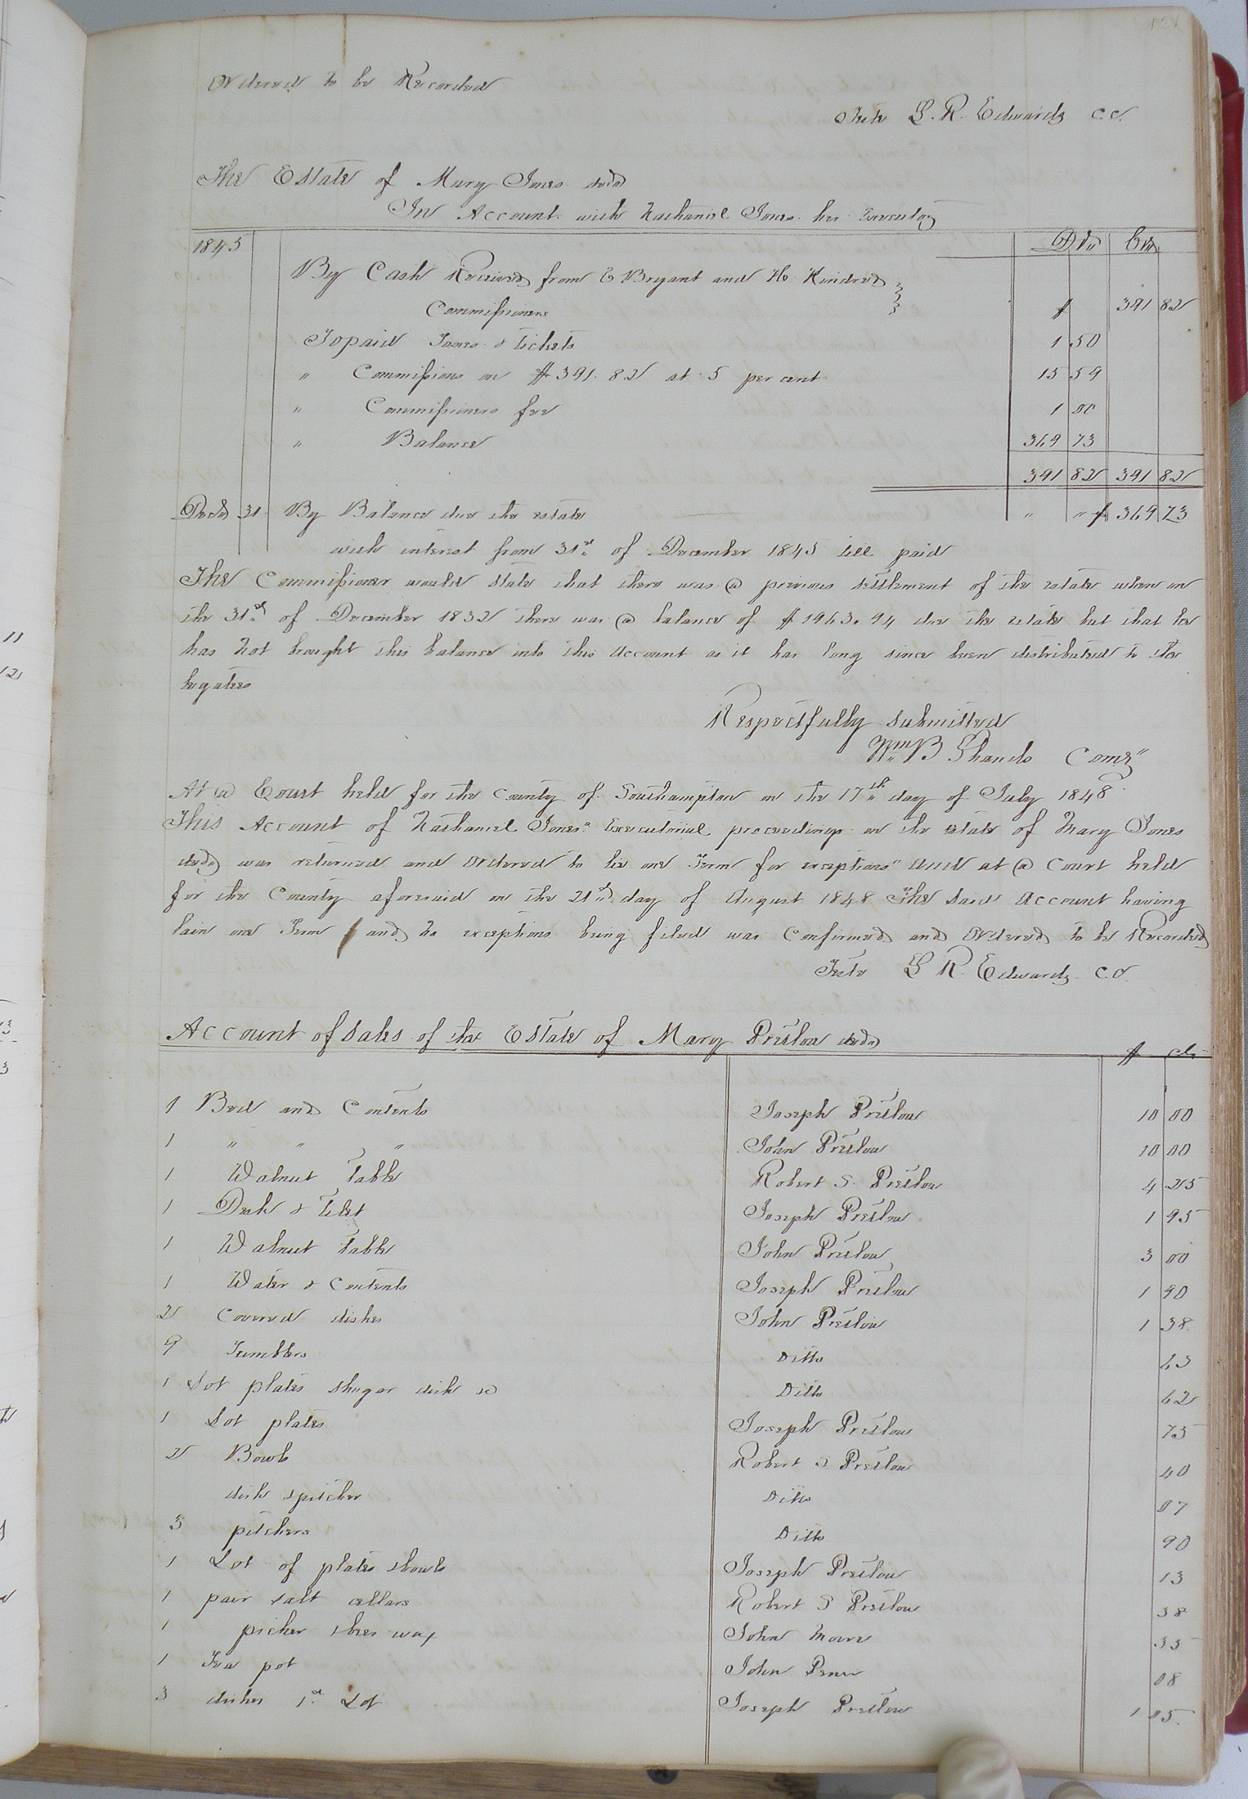 Ordered to be Recorded
Teste L. R. Edwards C.C.
The Estate of Mary Jones decd
In Account with Nathaniel Jones her Executor
1845 Dr Cr
By Cash Received from E Bryant and H Kindred
Commissioners $ 391 82
To paid Taxes & tickets 1 50
" Commissions on $391.82 at 5 per cent 19 59
" Commissioners fee 1 00
" Balance 369 73
391 82 391 82
Decr 31 By Balance due the estate " " $ 369 73
with interest from 31st of December 1845 till paid
The Commissioner would state that there was a previous settlement of the estate when on
the 31st of December 1832 there was a balance of $1963.94 due the estate but that he
has not brought this balance into this account as it has long since been distributed to the
legatees
Respectfully submitted
Wm B Shands Comr
At a Court held for the County of Southampton on the 17th day of July 1848
This Account of Nathaniel Jones' Executorial proceedings on the estate of Mary Jones
decd was returned and ordered to lie one Term for exceptions And at a Court held
for the County aforesaid on the 21st day of August 1848 The said Account having
lain one Term and no exceptions being filed was Confirmed and Ordered to be Recorded
Teste L R. Edwards CC
Account of Sales of the Estate of Mary Pretlow decd
$ cts
1 Bed and Contents Joseph Pretlow 10 00
1 " " " John Pretlow 10 00
1 Walnut Table Robert S. Pretlow 4 25
1 Desk & Joseph Pretlow 1 95
1 Walnut Table John Pretlow 3 00
1 Water & Contents Joseph Pretlow 1 90
2 Covered dishes John Pretlow 1 38
9 Tumblers Ditto 63
1 Lot plates shugar dish &c Ditto 62
1 Lot plates Joseph Pretlow 75
2 Bowls Robert S Pretlow 40
dish & pitcher Ditto 07
3 pitchers Ditto 90
1 Lot of plates & bowls Joseph Pretlow 13
1 pair salt cellars Robert S Pretlow 38
1 picher & bees wax John 55
1 Tea pot John 08
3 dishes 1st Lot Joseph Pretlow 1 05